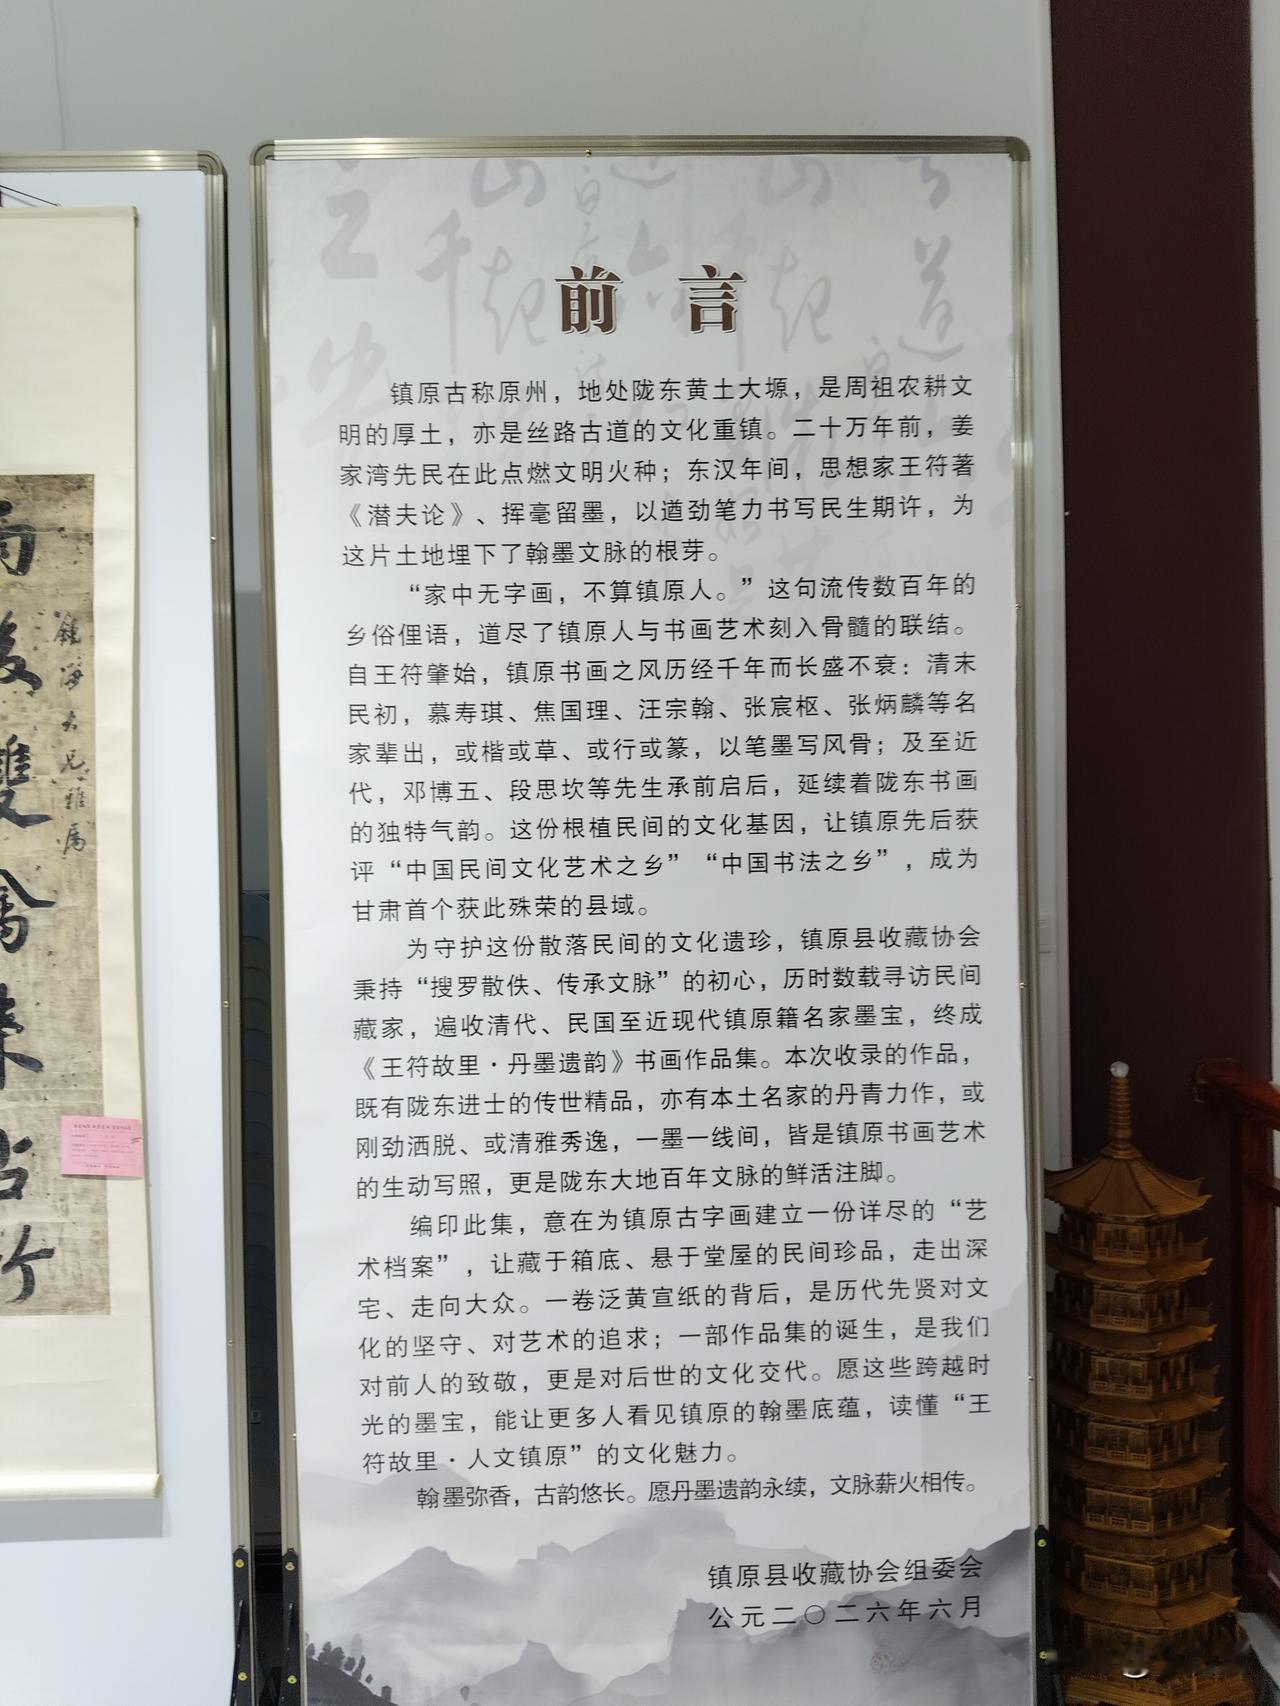 前言
镇原古称原州，地处陇东黄土大塬，是周祖农耕文
明的厚土，亦是丝路古道的文化重镇。二十万年前，姜
家湾先民在此点燃文明火种；东汉年间，思想家王符著
《潜夫论》、挥毫留墨，以遒劲笔力书写民生期许，为
这片土地埋下了翰墨文脉的根芽。
“家中无字画，不算镇原人。”这句流传数百年的
乡俗俚语，道尽了镇原人与书画艺术刻入骨髓的联结。
自王符肇始，镇原书画之风历经千年而长盛不衰：清末
民初，慕寿琪、焦国理、汪宗翰、张宸枢、张炳麟等名
家辈出，或楷或草、或行或篆，以笔墨写风骨；及至近
代，邓博五、段思坎等先生承前启后，延续着陇东书画
的独特气韵。这份根植民间的文化基因，让镇原先后获
评“中国民间文化艺术之乡”“中国书法之乡”，成为
甘肃首个获此殊荣的县域。
为守护这份散落民间的文化遗珍，镇原县收藏协会
秉持“搜罗散佚、传承文脉”的初心，历时数载寻访民间
藏家，遍收清代、民国至近现代镇原籍名家墨宝，终成
《王符故里·丹墨遗韵》书画作品集。本次收录的作品，
既有陇东进士的传世精品，亦有本土名家的丹青力作，或
刚劲洒脱、或清雅秀逸，一墨一线间，皆是镇原书画艺术
的生动写照，更是陇东大地百年文脉的鲜活注脚。
编印此集，意在为镇原古字画建立一份详尽的“艺
术档案”，让藏于箱底、悬于堂屋的民间珍品，走出深
宅、走向大众。一卷泛黄宣纸的背后，是历代先贤对文
化的坚守、对艺术的追求；一部作品集的诞生，是我们
对前人的致敬，更是对后世的文化交代。愿这些跨越时
光的墨宝，能让更多人看见镇原的翰墨底蕴，读懂“王
符故里·人文镇原”的文化魅力。
翰墨弥香，古韵悠长。愿丹墨遗韵永续，文脉薪火相传。
镇原县收藏协会组委会
公元二〇二六年六月